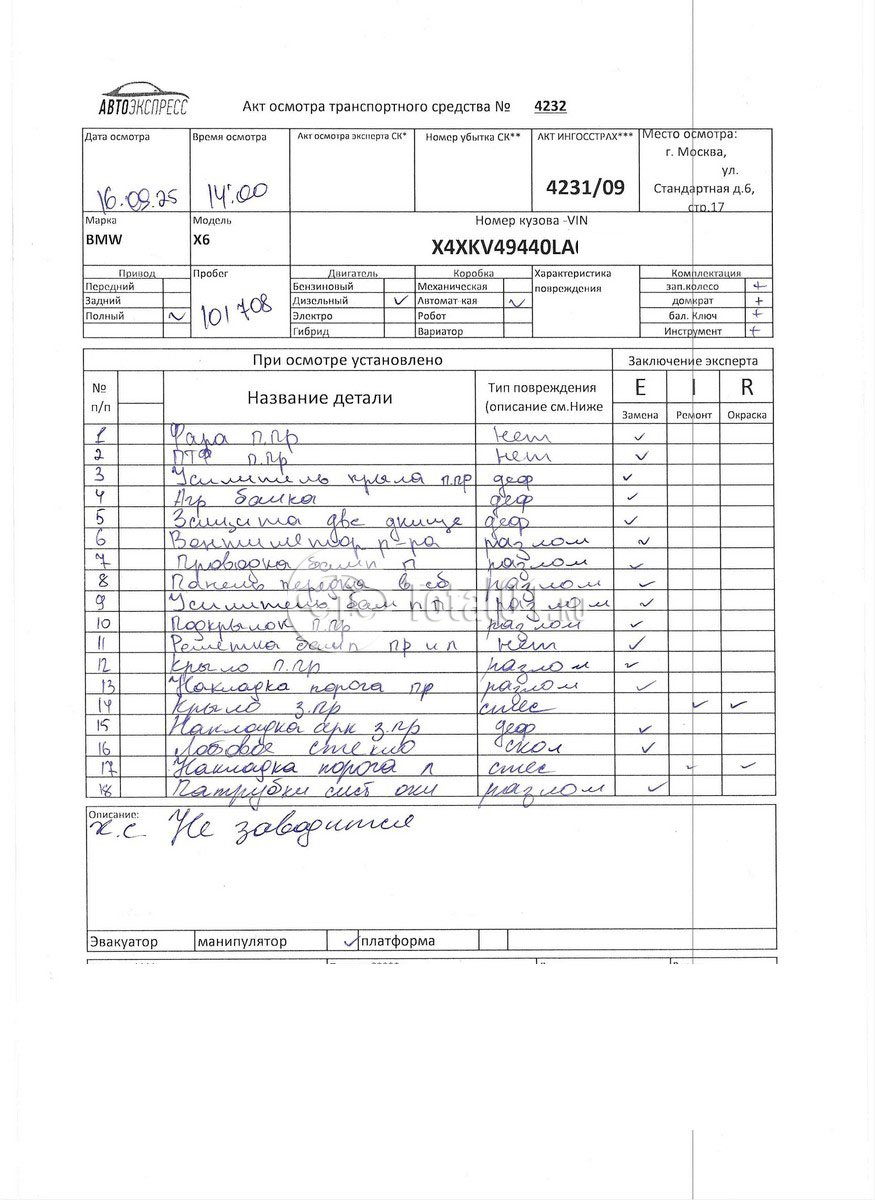 АВТОЭКСПРЕСС
Акт осмотра транспортного средства № 4232
Дата осмотра Время осмотра Акт осмотра эксперта СК* Номер убытка СК** АКТ ИНГОССТРАХ*** Место осмотра:
г. Москва,
ул.
16.09.25 14:00 4231/09 Стандартная д.6,
стр.17
Марка Модель Номер кузова -VIN
BMW X6 X4XKV49440LA
Привод Пробег Двигатель Коробка Характеристика Комплектация
Передний Бензиновый Механическая повреждения зап.колесо +
Задний Дизельный ✓ Автомат-кая ✓ домкрат +
Полный ✓ 101708 Электро Робот бал. Ключ +
Гибрид Вариатор Инструмент +
При осмотре установлено Заключение эксперта
№ п/п Название детали Тип повреждения (описание см.Ниже E I R
Замена Ремонт Окраска
1 Фара п.пр нет ✓
2 ПТФ п.пр нет ✓
3 Усилитель крыла п.пр деф ✓
4 Агр балка деф ✓
5 Защита две днище деф ✓
6 Вентилятор р-ра разлом ✓
7 Проводка бамп п разлом ✓
8 Панель передка в сб разлом ✓
9 Усилитель бам п п разлом ✓
10 Подкрылок п.пр разлом ✓
11 Решетка бамп пр и л нет ✓
12 Крыло п.пр разлом ✓
13 Накладка порога пр разлом ✓
14 Крыло з.пр стес ✓ ✓
15 Накладка арк з.пр деф ✓
16 Лобовое стекло скол ✓
17 Накладка порога л стес ✓ ✓
18 Патрубки сист охл разлом ✓
Описание:
х.с Не заводится
Эвакуатор манипулятор ✓ платформа
Total01.ru